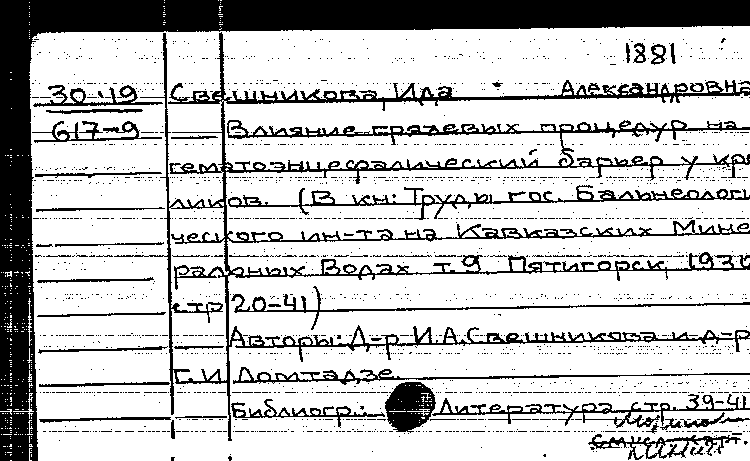 1881
30-19 Свешникова, Ида Александровна
617-9 Влияние грязевых процедур на
гематоэнцефралический барьер у кро
ликов. (В кн: Труды гос. Бальнеологи
ческого ин-та на Кавказских Мине
ральных Водах т.9 Пятигорск, 1930
стр 20-41)
Авторы: Д-р И.А. Свешникова и д-р
Г.И Ломтадзе.
Библиогр.: Литература стр. 39-41